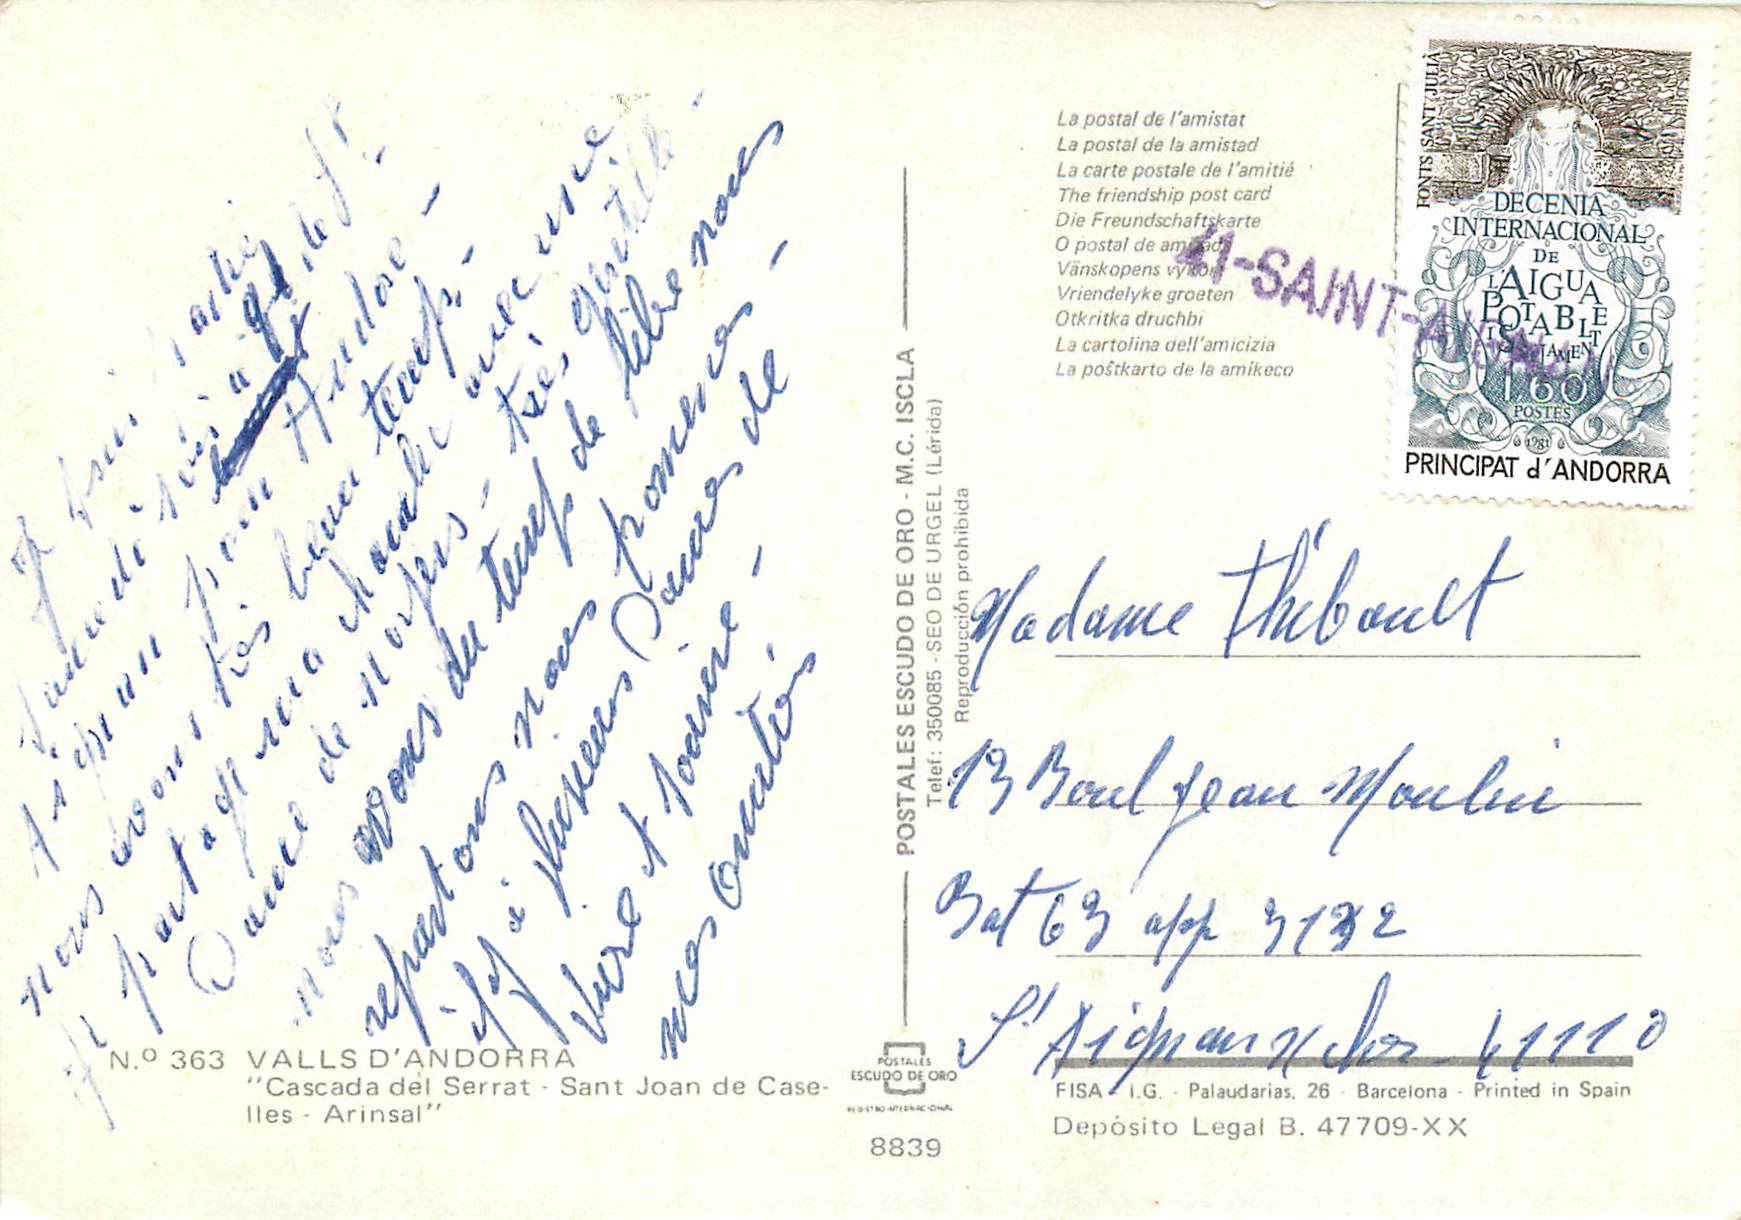 Je suis partie
Samedi à gd de St
Aignan pour Andore -
nous avons très beau temps -
Je partage ma chambre avec une
Dame de Noyers - très gentille -
nous avons du temps de libre nous
repartons nous promener -
il y a plusieurs Dames de
mes amitiés
La postal de l'amistat
La postal de la amistad
La carte postale de l'amitié
The friendship post card
Die Freundschaftskarte
O postal de amizade
Vänskopens vykort
Vriendelyke groeten
Otkritka druchbi
La cartolina dell'amicizia
La poŝtkarto de la amikeco
41-SAINT-AIGNAN
FONTS SANT JULIÀ
DECENIA
INTERNACIONAL
DE
L'AIGUA
POTABLE
I SANEJAMENT
1,60
POSTES
1981
PRINCIPAT d'ANDORRA
POSTALES ESCUDO DE ORO - M.C. ISCLA
Telef: 350085 - SEO DE URGEL (Lérida)
Reproducción prohibida
Madame Thibault
13 Boul Jean Moulin
Bat 63 app 3132
St Aignan s/ Cher 41110
N.º 363 VALLS D'ANDORRA
"Cascada del Serrat - Sant Joan de Case-
lles - Arinsal"
POSTALES
ESCUDO DE ORO
REGISTRO INTERNACIONAL
8839
FISA - I.G. - Palaudarias, 26 - Barcelona - Printed in Spain
Depósito Legal B. 47709-XX